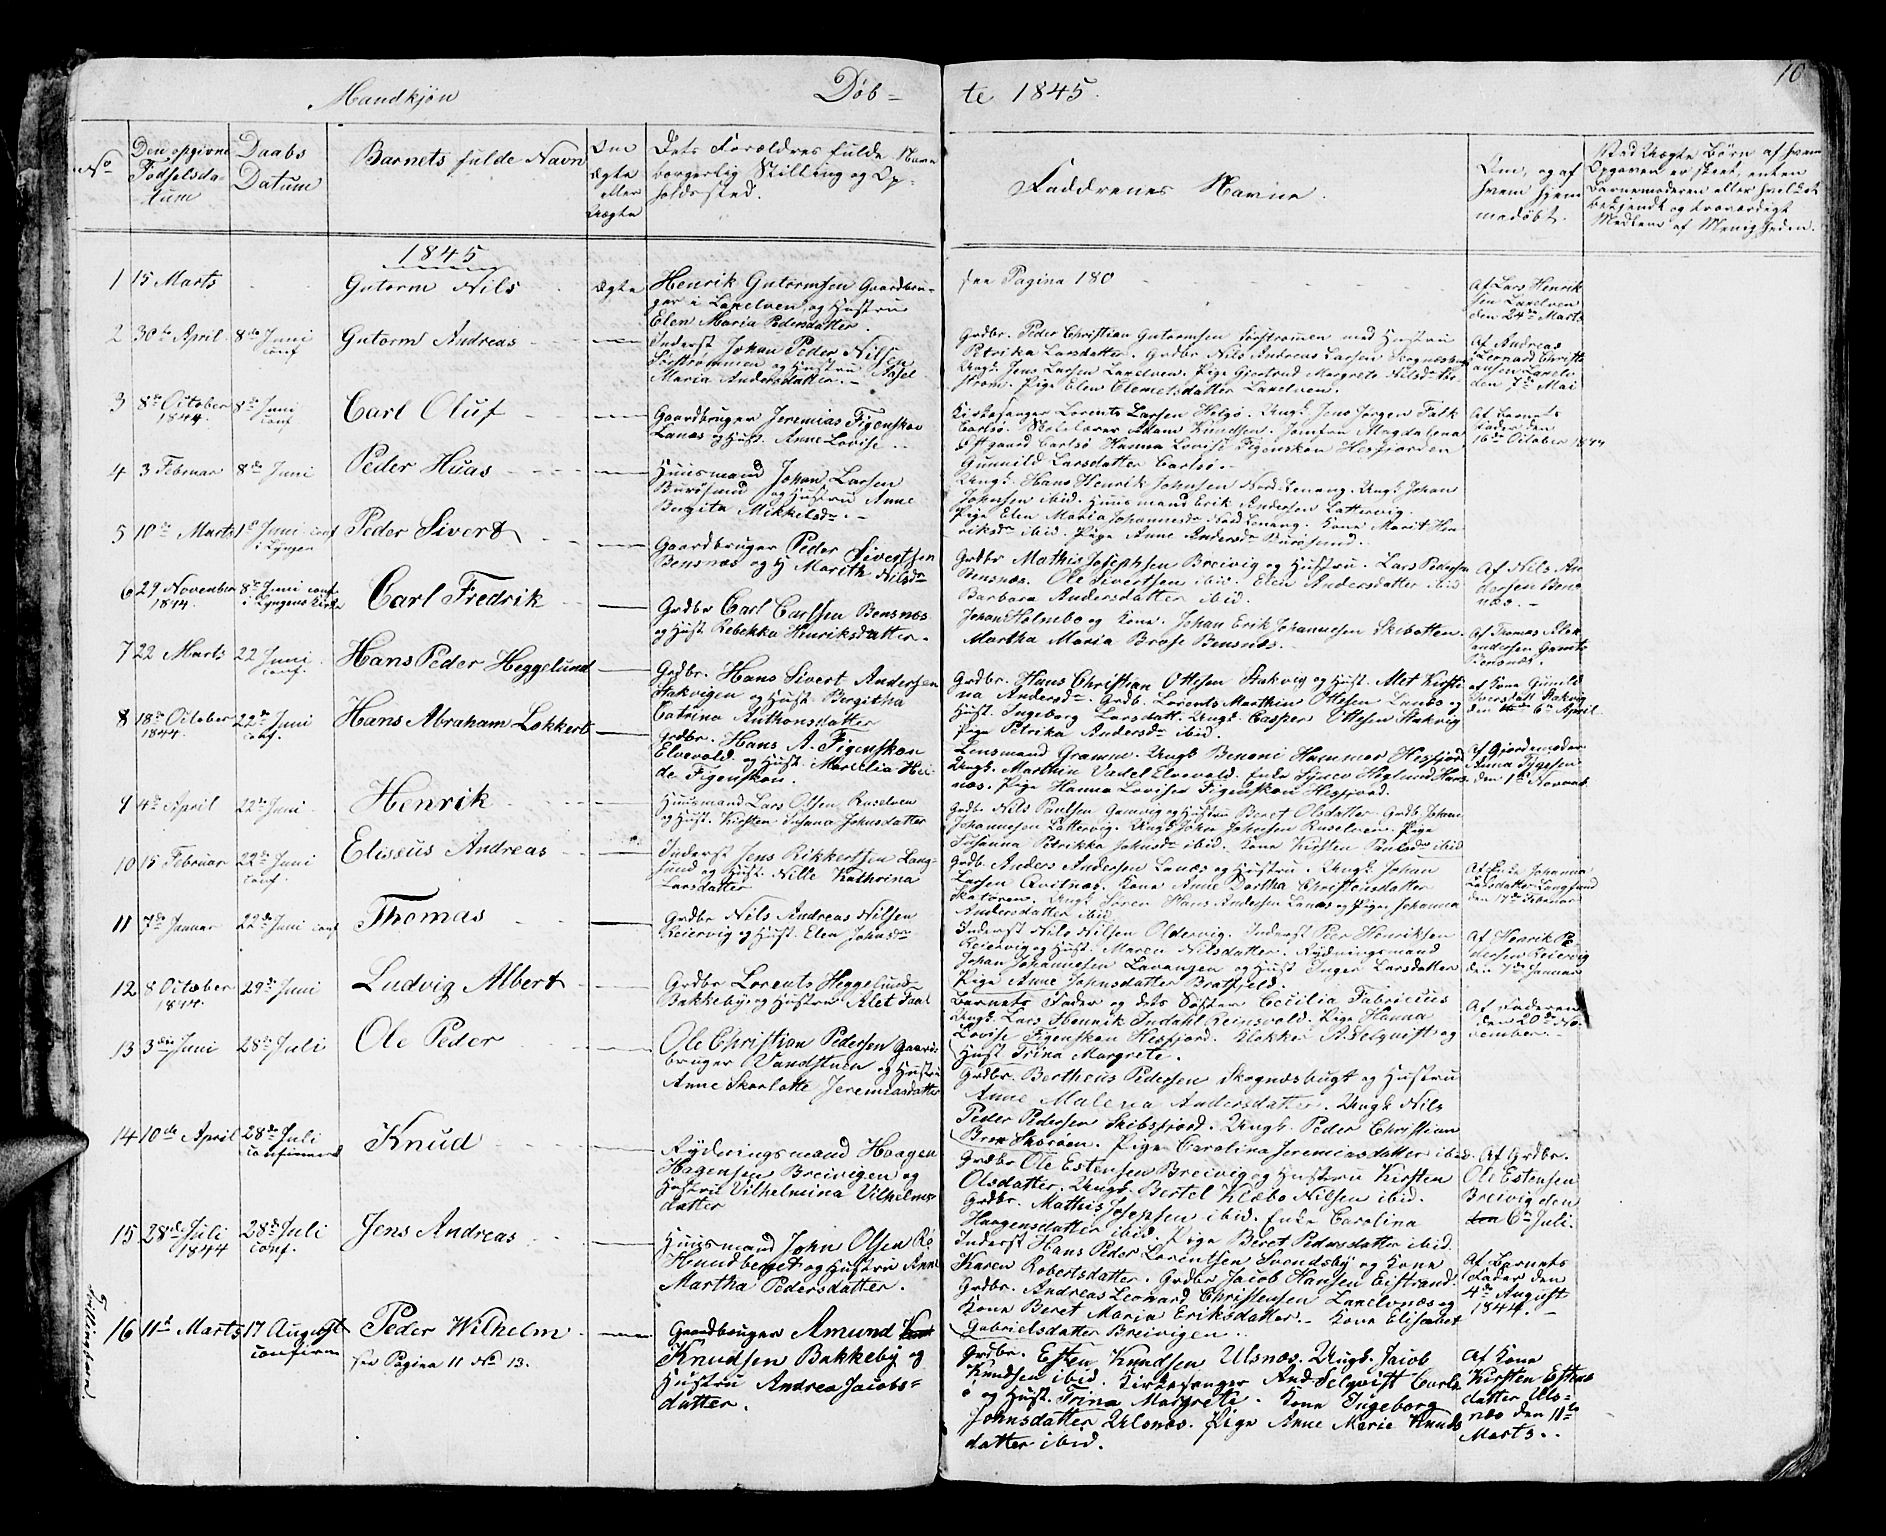 Mandkjøn
Døb-
te 1845.
10
No
Den opgivne Fødselsda-tum
Daabs Datum
Barnets fulde Navn
Om ægte eller Uægte
Dets Forældres fulde Navn borgerlig Stilling og Op-holdssted.
Faddrenes Navne.
Om, og af hvem hjem-medøbt.
Ved Uægte Børn af hvem Opgaven er skeet, enten Barnemoderen eller hvilket bekjendt og troværdigt Medlem af Menigheden.
1845
1 15 Marts
Gutorm Nils
ægte
Henrik Gutormsen Gaardbru-
ger i Lanelven og Hustru
Elen Maria Pedersdatter.
see Pagina 180
Af Lars Henrik
sen Lanelven
den 24de Marts
2 30te April 8de Juni conf
Gutorm Andreas
Inderst Johan Peder Nilsen
og Hustru
Maria Andersdatter.
Grdbr. Peder Christian Gutormsen med Hustru
Petrika Larsdatter. Grdbr Nils Andreas Larsen
Ungk. Jens Larsen Lanelven. Pige Gjertrud Margrete Nilsdtr
Pige Elen Clemetsdatter Lanelven.
Af Andreas
Leonard Christi
ansen
den 7de Mai
3 8de October 1844. 8de Juni conf
Carl Oluf
Gaardbruger Jeremias Figenskou
Lanæs og Hust. Anne Lovise.
Kirkesanger Lorents Larsen Helgø. Ungk. Jens Jørgen Falk
Carlsø. Skolelærer Adam Knudsen. Jomfru Magdalena
Østgaard Carlsø Hanna Lovise Figenskou Hesfjorden
Gunnild Larsdatter Carlsø.
Af Barnets
Fader den
16de October 1844
4 3 Februar 8de Juni
Peder Huas
Huusmand Johan Larsen
Burøsund og Hustru Anne
Bergita Mikkelsdr.
Ungk. Hans Henrik Johnsen Nord-Lenang. Ungk. Johan
Johnsen ibid. Huusmand Erik Andersen Lattervig.
Pige Elen Maria Johannesdr Nord Lenang. Kone Marit Hen
riksdr ibid. Pige Anne Andersdr Burøsund.
5 10de Marts 1ste Juni conf i Lyngen
Peder Sivert
Gaardbruger Peder Sivertsen
Bensnæs og H. Marith Nilsdr
Grdbr Mathis Josephsen Breivig og Hustru. Lars Pedersen
Bensnæs. Ole Sivertsen ibid. Elen Andersdatter ibid
Barbara Andersdatter ibid.
Af Nils An
dersen Bens
næs.
6 29 November 1844. 8de Juni conf. i Lyngens Kirke
Carl Fredrik
Grdbr Carl Carlsen Bensnæs
og Hust Rebekka Henriksdatter.
Johan Holmbo og Kone. Johan Erik Johannesen Skibotten.
Martha Maria Brose Bensnæs.
Af Thomas Alek
sandersen
Bensnæs.
7 22 Marts 22 Juni conf.
Hans Peder Heggelund
Grdbr. Hans Sivert Andersen
Stakvigen og Hust. Bergitha
Catrina Anthonsdatter
Grdbr. Hans Christian Ottesen Stakvig og Hust. Alet Kirsti
na Andersdr. Grdb. Lorents Marthin Ottesen Lanbo og
Hust. Ingeborg Larsdatt. Ungk. Casper Ottesen Stakvig
Pige Petrika Andersdr ibid.
af Kone Gunild
Stakvig
den 6te April.
8 18de October 1844. 22de Juni conf.
Hans Abraham Lokkert
Grdbr. Hans A. Figenskou
Elvevold og Hust. Marselia Hei
de Figenskou.
Lensmand Gramm. Ungk Benoni Hammer Hesfjord
Ungk. Marthin Vadel Elvevold. Enke Synev Heglund Hans
næs. Pige Hanna Lovise Figenskou Hesfjord.
Af Gjordemoder
Anna
den 1ste Novemb.
9 4de April 22de Juni
Henrik
Huusmand Lars Olsen Ruselven
og Hust. Kirsten Susana Johnsdatter
Grdbr Nils Paulsen Gamvig og Hustru Beret Olsdatter. Grdb. Johan
Johannesen Lattervig. Ungk. John Johnsen Ruselven. Pige
Susanna Petrikke Johnsdr ibid. Kone Kirsten Paulsdr ibid
10 15 Februar 22de Juni conf.
Elisæus Andreas
Inderst Jens Rikkertsen Lang-
sund og Hust. Nille Kathrina
Larsdatter
Grdb. Anders Andersen Lanæs og Hustru. Ungk. Johan
Larsen Qvitnæs. Kone Anne Dortha Christensdatter
Skatøren. Ungk. Søren Hans Andersen Lanæs og Pige Johanna
Andersdatter ibid
Af Enke Johanna
Larsdatter Langsund
den 17de Februar
11 7de Januar 22de Juni conf
Thomas
Grdbr Nils Andreas Nilsen
Reiervig og Hust. Elen Johnsdr
Inderst Nils Nilsen Oldervig. Inderst Peer Henriksen
Reiervig og Hust. Maren Nilsdatter. Rydningsmand
Johan Johannesen Lavangen og Hust Inger Larsdatter
Pige Anne Johnsdatter Bratfjeld.
Af Henrik Pe
dersen Reiervig
den 7de Januar
12 8 October 1844. 29de Juni
Ludvig Albert
Grdbr Lorents Heggelund
Bakkeby og Hustru Alet Faal
Barnets Fader og dets Søster Cecilia Fabricius
Ungk. Lars Henrik Indahl Reinsvold. Pige Hanna
Lovise Figenskou Hesfjord. Klokker A. Selqvist og
Hust Trina Margrete.
Af Faderen
den 20de No
vember
13 3die Juni 28de Juli
Ole Peder
Ole Christian Pedersen Gaard-
bruger Vandstuen og Hustru
Anne Skarlotte Jeremiasdatter
Grdbr. Bertheus Pedersen Skognæsbugt og Hustru
Anne Malena Andersdatter. Ungk. Nils
Peder Pedersen Skibsfjord. Ungk. Peder Christian
Skarøen. Pige Carolina Jeremiasdatter ibid.
14 10de April 28de Juli confirmerd
Knud
Rydningsmand Haagen
Hagensen Breivigen og
Hustru Vilhelmina Vilhelms-
datter
Grdbr Ole Estensen Breivig og Hustru Kirsten
Olsdatter. Ungk. Bertel Klæbo Nilsen ibid.
Grdbr. Mathis Josepsen ibid. Enke Carolina
Haagensdatter ibid. Pige Beret Pedersdatter ibid.
Af Grdbr.
Ole Estensen
Breivig den
6te Juli.
15 28de Juli 1844 28de Juli conf.
Jens Andreas
Huusmand John Olsen
og Hustru Anne
Martha Pedersdatter.
Inderst Hans Peder Lorentsen Svendsby og Kone
Karen Robertsdatter. Grdbr Jacob Hansen Eistrand.
Grdbr. Andreas Leonard Christensen Lanelvnæs og
Kone Beret Maria Eriksdatter. Kone Elisabet
Gabrielsdatter Breivigen.
Af Barnets
Fader den
4de August
1844.
Tvillingbørn
16 11te Marts 17 August confirm
Peder Wilhelm
see Pagina 11 No 13.
Gaardbruger Amund
Knudsen Bakkeby og
Hustru Andrea Jacobs-
datter.
Grdbr. Esten Knudsen Ulsnæs. Ungk. Jacob
Knudsen ibid. Kirkesanger And. Selqvist Carls
ø og Hust. Trina Margrete. Kone Ingeborg
Johnsdatter Ulsnæs. Pige Anne Marie Knuds
datter ibid.
Af Kone
Kirsten Estens
datter Uls-
næs den 11te
Marts.